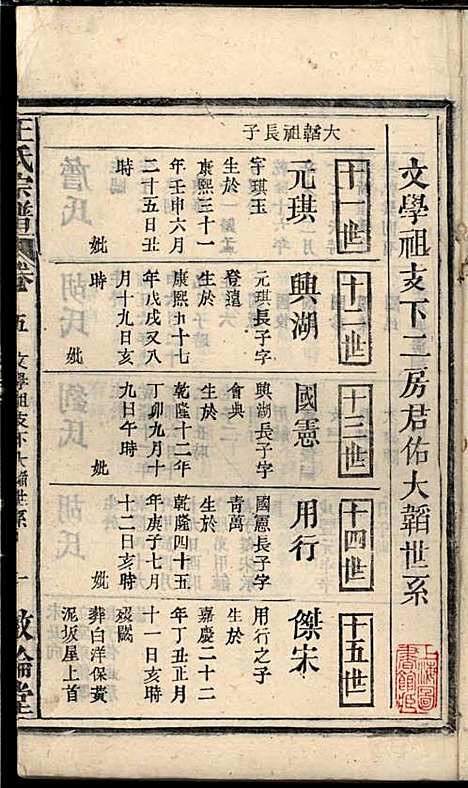 文學祖支下二房君佑大韜世系
十一世
大韜祖長子
元琪
字琪玉
生於
康熙三十一
年壬申六月
二十五日丑
時
妣
十二世
興湖
元琪長子字
登瀛
生於
康熙五十七
年戊戌又八
月十九日亥
時
妣
十三世
國憲
興湖長子字
會典
生於
乾隆十二年
丁卯九月十
九日午時
妣
十四世
用行
國憲長子字
青萬
生於
乾隆四十五
年庚子七月
十二日亥時
妣
十五世
傑宋
用行之子
生於
嘉慶二十二
年丁丑正月
十一日亥時
歿闕
葬白洋保黄
泥坂屋上首
王氏宗譜
卷五
文學祖支下大韜世系
一
敦倫堂
上海圖
書館藏